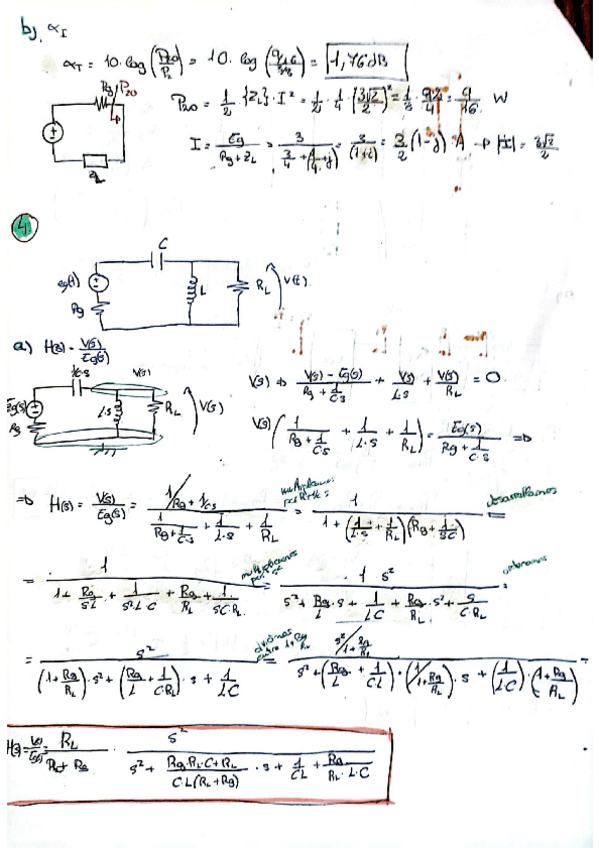 b) α_I
α_T = 10·log(P20/P_L) = 10·log() = 1,76 dB
Rg P20
P20 = 1/2 · {Z_L} · I² = 1/2 · 1/4 · (3√2/2)² = 1/8 · 9·2/4 = 9/16 W
Z_L
I = Eg/(Rg + Z_L) = = 3/(1+j) = 3/2 (1-j) A → |I| = 3√2/2
4
C
eg(t) L R_L v(t)
Rg
a) H(s) = V(s)/Eg(s)
1/C·s V(s)
Eg(s) L·s R_L V(s)
Rg
V(s) ⇒ (V(s) - Eg(s))/(Rg + 1/Cs) + V(s)/L·s + V(s)/R_L = 0
V(s) (1/(Rg + 1/C·s) + 1/L·s + 1/R_L) = Eg(s)/(Rg + 1/C·s) ⇒
⇒ H(s) = V(s)/Eg(s) = (1/(Rg + 1/Cs))/(1/(Rg + 1/Cs) + 1/L·s + 1/R_L) = multiplicamos por = 1/(1 + (1/L·s + 1/R_L)(Rg + 1/SC)) = desarrollamos
= 1/(1 + Rg/SL + 1/S²·L·C + Rg/R_L + 1/SC·R_L) = multiplicamos por s² = 1·s²/(s² + Rg/L · s + 1/LC + Rg/R_L · s² + s/C·R_L) = ordenamos
= s²/((1 + Rg/R_L)·s² + (Rg/L + 1/CR_L)·s + 1/LC) = dividimos entre 1 + Rg/R_L = (s²/(1 + Rg/R_L))/(s² + (Rg/L + 1/CL)·(1/1+Rg/R_L)·s + (1/LC)·(1+Rg/R_L)) =
H(s) = V(s)/Eg(s) = R_L/(R_L + Rg) · s²/(s² + (Rg·R_L·C + R_L)/(C·L(R_L + Rg)) · s + 1/CL + Rg/R_L·L·C)